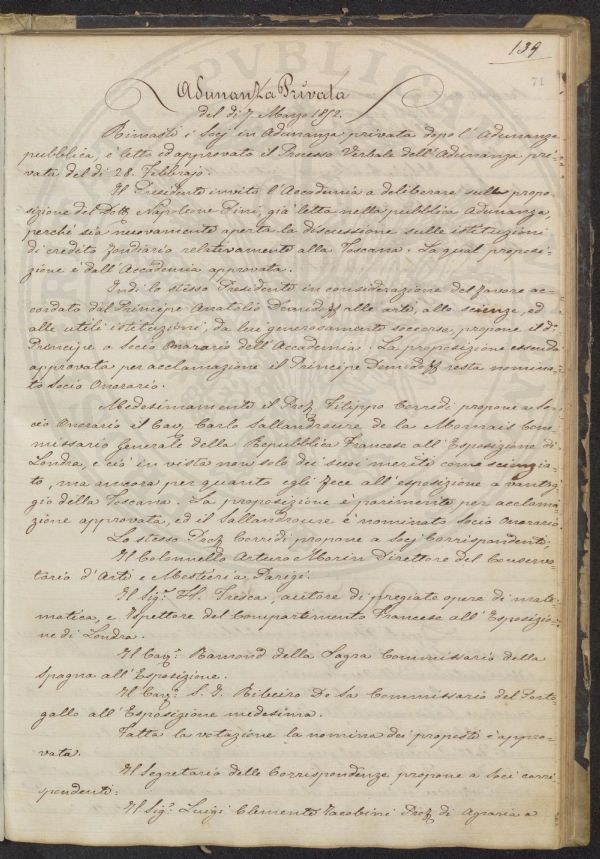 139
71
Adunanza Privata
del dì 7. Marzo 1852.
Rimasti i Socj in Adunanza privata dopo l'Adunanza
pubblica, è letto ed approvato il Processo Verbale dell'Adunanza pri-
vata del dì 28. Febbrajo.
Il Presidente invita l'Accademia a deliberare sulla propo-
sizione del Dott. Napoleone Pini, già letta nella pubblica Adunanza,
perché sia nuovamente aperta la discussione sulle istituzioni
di credito fondiario relativamente alla Toscana. La qual proposi-
zione è dall'Accademia approvata.
Indi lo stesso Presidente in considerazione del favore ac-
cordato dal Principe Anatolio Demidoff alle arti, alle scienze, ed
alle utili istituzioni, da lui generosamente soccorse, propone il dº
Principe a Socio Onorario dell'Accademia. La proposizione essendo
approvata per acclamazione il Principe Demidoff resta nomina-
to Socio Onorario.
Medesimamente il Prof. Filippo Corredi propone a So-
cio Onorario il Cav. Carlo Sallandrouze de la Mornais Com-
missario Generale della Repubblica Francese all'Esposizione di
Londra, e ciò in vista non solo dei suoi meriti come scienzia-
to, ma ancora per quanto egli fece all'esposizione a vantag-
gio della Toscana. La proposizione è parimente per acclama-
zione approvata, ed il Sallandrouze è nominato Socio Onorario
Lo stesso Prof. Corredi propone a Socj Corrispondenti,
Il Colonnello Arturo Morin Direttore del Conserva-
torio d'Arti e Mestieri a Parigi.
Il Sigr. Th. Tresca, autore di pregiate opere di mate-
matica, e Ispettore del Compartimento Francese all'Esposizio-
ne di Londra.
Il Cavr. Ramond della Sagra Commissario della
Spagna all'Esposizione.
Il Cavr. S. J. Ribeiro De Sa Commissario del Porto-
gallo all'Esposizione medesima.
Fatta la votazione la nomina dei proposti è appro-
vata.
Il Segretario delle Corrispondenze propone a Soci corri-
spondenti:
Il Sigr. Luigi Clemente Jacobini Prof. di Agraria a